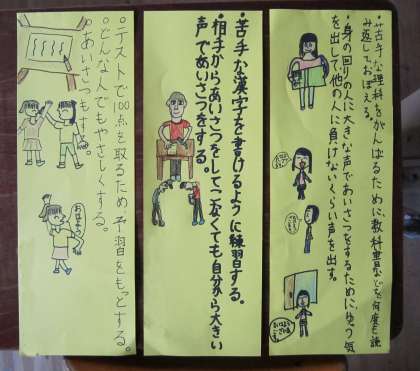 ・苦手な理科をがんばるために、教科書などを何度も読
み返しておぼえる。
・身の回りの人に大きな声であいさつをするために、ゆう気
を出して、他の人に負けないくらい声を出す。
・苦手な漢字を書けるように練習する。
・相手からあいさつをしてこなくても自分から大きい
声であいさつをする。
・テストで100点を取るため予習をもっとする。
・どんな人でもやさしくする。
・あいさつもする。
おはよう